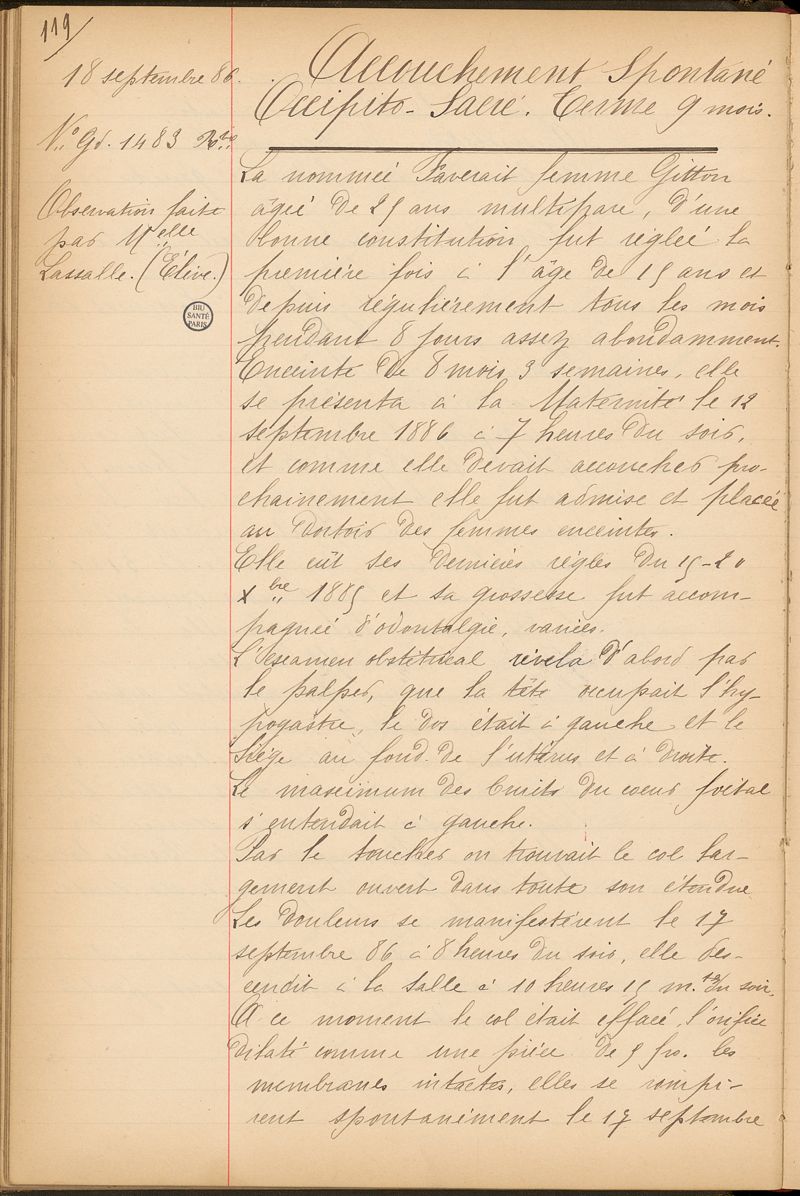 119
18 septembre 86.
N° Gd. 1483
Observation faite
par Melle
Lassalle. (Élève.)
BIU
SANTÉ
PARIS
Accouchement Spontané
Occipito-Sacré. Terme 9 mois.
La nommée Faverait femme Gitton
âgée de 25 ans multipare, d'une
bonne constitution, fut réglée la
première fois à l'âge de 15 ans et
depuis régulièrement tous les mois
pendant 8 jours assez abondamment.
Enceinte de 8 mois 3 semaines, elle
se présenta à la Maternité le 12
septembre 1886 à 7 heures du soir,
et comme elle devait accoucher pro-
chainement elle fut admise et placée
au dortoir des femmes enceintes.
Elle eût ses dernières règles du 15-20
Xbre 1885 et sa grossesse fut accom-
pagnée d'odontalgie, variées.
L'examen obstétrical révéla d'abord par
le palper, que la tête occupait l'hy-
pogastre, le dos était à gauche et le
Siège au fond de l'utérus et à droite.
Le maximum des bruits du coeur foetal
s'entendait à gauche.
Par le toucher on trouvait le col lar-
gement ouvert dans toute son étendue
Les douleurs se manifestèrent le 17
septembre 86 à 8 heures du soir, elle des-
cendit à la salle à 10 heures 15 m. du soir,
A ce moment le col était effacé, l'orifice
dilaté comme une pièce de 5 frs. les
membranes intactes, elles se rompi-
rent spontanément le 17 septembre